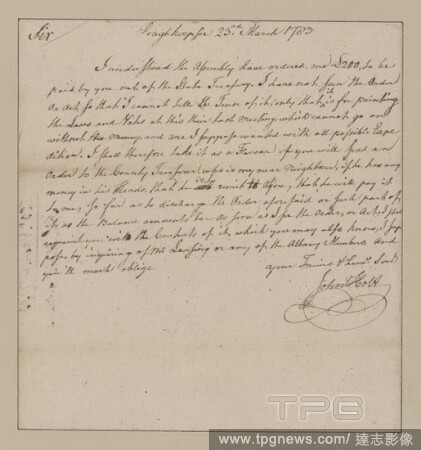 Sir
Poughkeepsie 25th March 1783
I understand the Assembly have ordered me £200, to be
paid by you out of the State Treasury. I have not seen the Order
or Act so that I cannot tell the Tenor of it, only that it is for printing
the Laws and Votes at this their last Meeting which cannot go on
without the Money and are I suppose wanted with all possible Expe
dition. I shall therefore take it as a Favour if you will send an
Order to the County Treasurer who is my near Neighbour, if he has any
money in his Hands, that he will remit to you, that he will pay it
to me, so far as to discharge the Order aforesaid or such part of
it as the Balance amounts to. As soon as I see the Order, or Act I shall
acquaint you with the Contents of it, which you may also know, I sup
pose by inquiring of Mr Lansing or any of the Albany Members and
you'll much oblige
your Friend & Humb. Servt
John Holt
TPG
www.tpgnews.com/ 達志影像